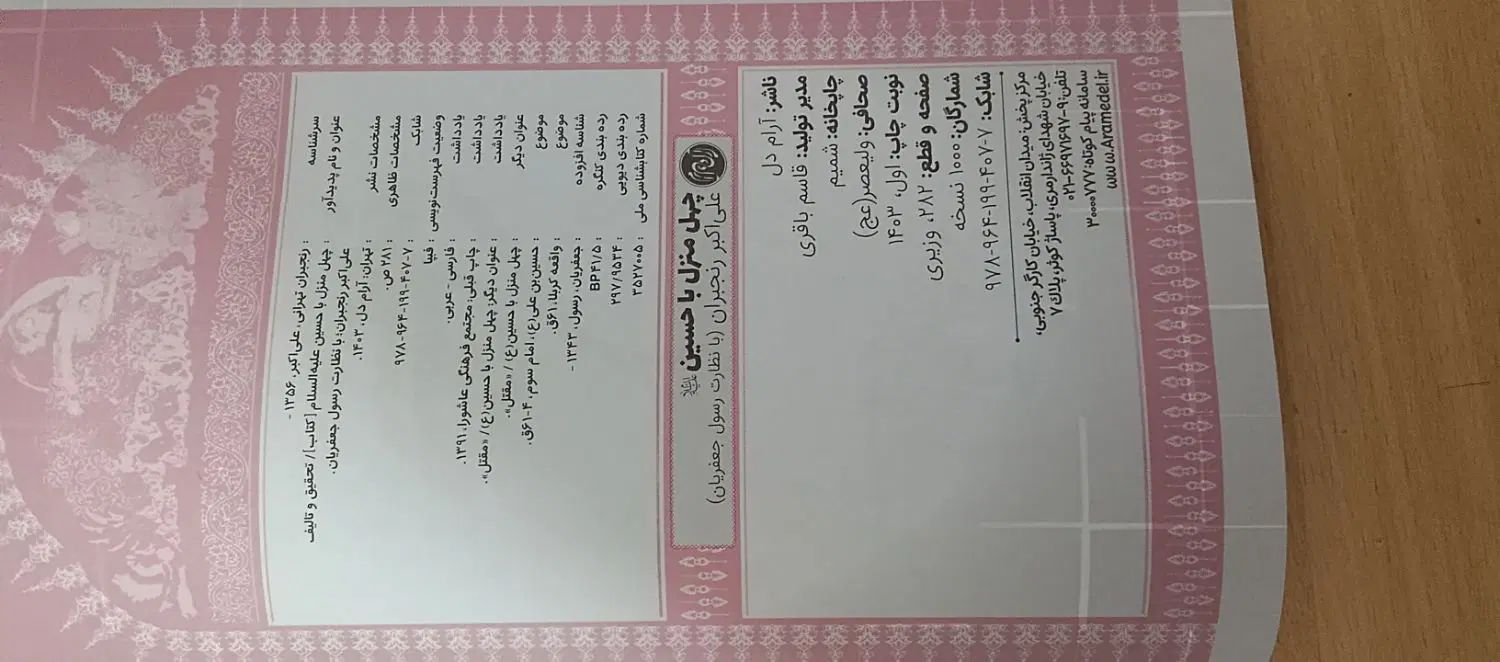 سرشناسه : رنجبران تهرانی، علی‌اکبر، ۱۳۵۶ -
عنوان و نام پدیدآور : چهل منزل با حسین علیه‌السلام [کتاب]/ تحقیق و تالیف
علی‌اکبر رنجبران؛ با نظارت رسول جعفریان.
مشخصات نشر : تهران: آرام دل، ۱۴۰۳.
مشخصات ظاهری : ۲۸۱ ص.
شابک : ۹۷۸-۹۶۴-۱۹۹-۴۰۷-۷
وضعیت فهرست‌نویسی : فیپا
یادداشت : فارسی - عربی.
یادداشت : چاپ قبلی: مجتمع فرهنگی عاشورا، ۱۳۹۱.
یادداشت : عنوان دیگر: چهل منزل با حسین(ع)/ «مقتل».
عنوان دیگر : چهل منزل با حسین(ع) / «مقتل».
موضوع : حسین‌بن علی(ع)، امام سوم، ۴-۶۱ق.
موضوع : واقعه کربلا، ۶۱ق.
شناسه افزوده : جعفریان، رسول، ۱۳۴۳-
رده بندی کنگره : BP۴۱/۵
رده بندی دیویی : ۲۹۷/۹۵۳۴
شماره کتابشناسی ملی : ۳۵۲۷۰۰۵
چهل منزل با حسین
علی‌اکبر رنجبران (با نظارت رسول جعفریان)
ناشر: آرام دل
مدیر تولید: قاسم باقری
چاپخانه: شمیم
صحافی: ولیعصر(عج)
نوبت چاپ: اول، ۱۴۰۳
صفحه و قطع: ۲۸۲، وزیری
شمارگان: ۱۰۰۰ نسخه
شابک: ۹۷۸-۹۶۴-۱۹۹-۴۰۷-۷
مرکز پخش: میدان انقلاب، خیابان کارگر جنوبی،
خیابان شهدای ژاندارمری، پاساژ کوثر، پلاک ۷
تلفن: ۹-۶۶۹۷۱۶۹۷-۰۲۱
سامانه پیام کوتاه: ۳۰۰۰۰۷۷۷
www.Aramedel.ir